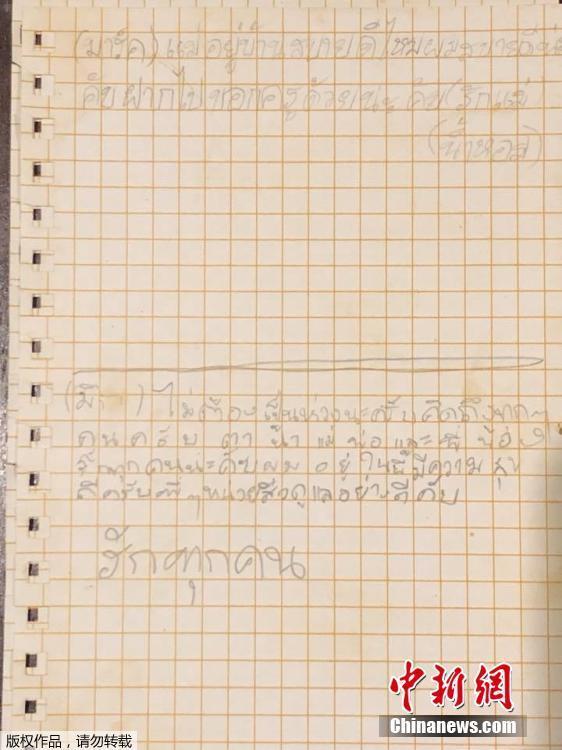 (มาร์ค) แม่อยู่บ้านสบายดีไหมผมสบายดี
คับฝากไปบอกครูด้วยนะคับ (รักแม่
(น้ำหอม)
( ) ไม่ต้องเป็นห่วงนะครับคิดถึงทุกๆ
คนครับ ตา น้า แม่ พ่อ และพี่ น้อง
รักทุกคนนะคับผมอยู่ในนี้มีความสุข
ดีครับพี่ๆหน่วยซีลดูแลอย่างดีคับ
รักทุกคน
中新网
Chinanews.com
版权作品，请勿转载